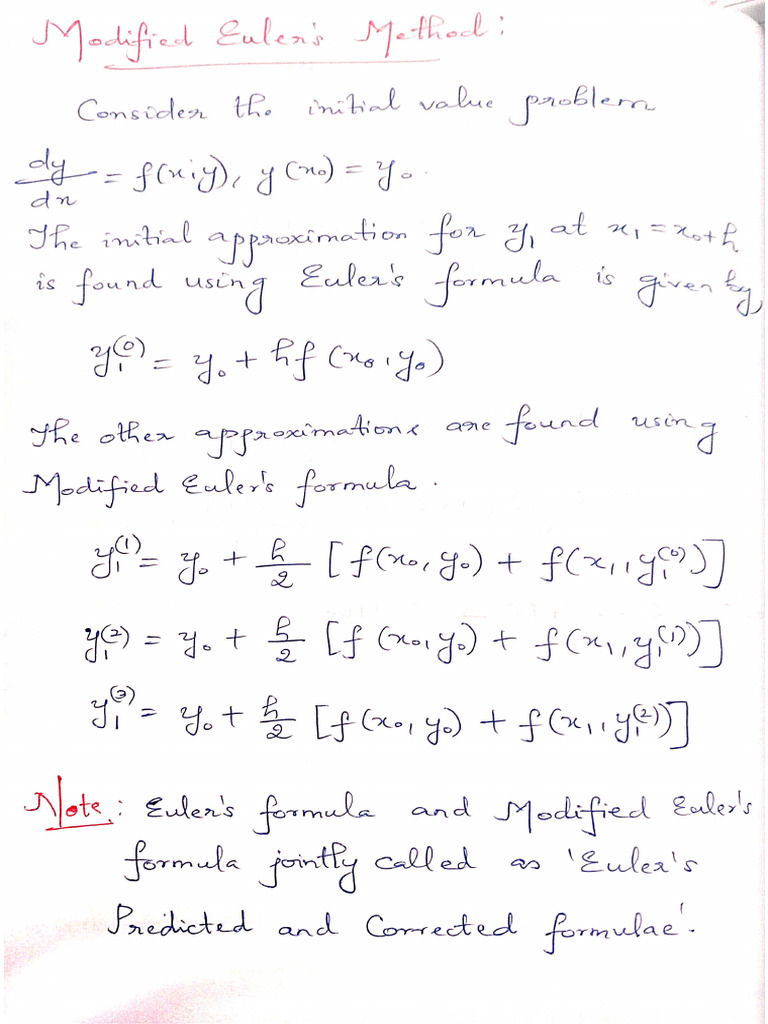 Modified Euler's Method:
Consider the initial value problem
dy/dx = f(x,y), y(x₀) = y₀.
The initial approximation for y₁ at x₁ = x₀+h
is found using Euler's formula is given by,
y₁⁽⁰⁾ = y₀ + hf(x₀,y₀)
The other approximations are found using
Modified Euler's formula.
y₁⁽¹⁾ = y₀ + h/2 [f(x₀,y₀) + f(x₁,y₁⁽⁰⁾)]
y₁⁽²⁾ = y₀ + h/2 [f(x₀,y₀) + f(x₁,y₁⁽¹⁾)]
y₁⁽³⁾ = y₀ + h/2 [f(x₀,y₀) + f(x₁,y₁⁽²⁾)]
Note: Euler's formula and Modified Euler's
formula jointly called as 'Euler's
Predicted and Corrected formulae'.